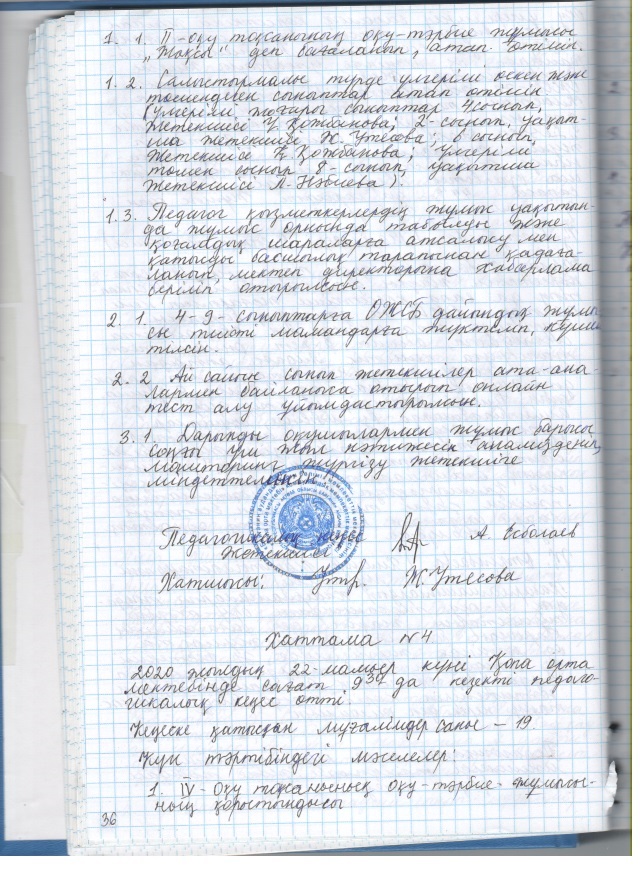 1. 1. II-оқу тоқсанының оқу-тәрбие жұмысы
„Жақсы" деп бағаланып, атап өтілсін.
1. 2. Салыстырмалы түрде үлгерімі өскен және
төмендеген сыныптар атап өтілсін
(үлгерімі жоғары сыныптар 4 сынып,
жетекшісі У. Қожбанова; 2-сынып, уақыт-
ша жетекшісі Ж. Утесова; 6 сынып,
жетекшісі Қожбанова; үлгерімі
төмен сынып 8-сынып, уақытша
жетекшісі Л. Нәбиева).
1. 3. Педагог қызметкерлердің жұмыс уақытын-
да жұмыс орнында табылуы және
қоғамдық шараларға атсалысу мен
қатысуы басшылық тарапынан қадаға-
ланып, мектеп директорына хабарлама
беріліп отырылсын.
2. 1. 4-9-сыныптарға ОЖСБ дайындық жұмы
сы тиісті мамандарға жүктеліп, күше
тілсін.
2. 2 Ай сайын сынып жетекшілер ата-ана-
лармен байланыса отырып онлайн
тест алу ұйымдастырылсын.
3. 1. Дарынды оқушылармен жұмыс барысы
соңғы үш жыл нәтижесін
мониторинг жүргізу жетекшіге
міндеттелсін.
Педагогикалық кеңес
жетекшісі А. Есболаев
Хатшысы: Ж. Утесова
Хаттама №4
2020 жылдың 22-мамыр күні Қоға орта
мектебінде сағат 9³⁰ да кезекті педаго-
гикалық кеңес өтті.
Кеңеске қатысқан мұғалімдер саны – 19.
Күн тәртібіндегі мәселелер:
1. IV-Оқу тоқсанының оқу-тәрбие жұмысы-
ның қорытындысы
36